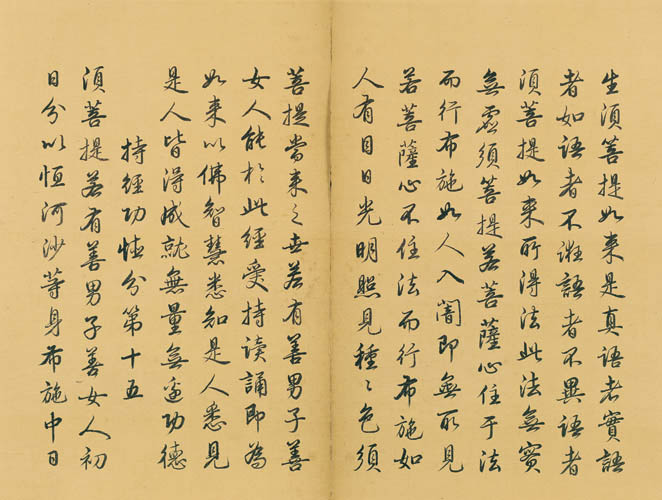 生須菩提如来是真語者實語
者如語者不誑語者不異語者
須菩提如来所得法此法無實
無虛須菩提若菩薩心住于法
而行布施如人入闇即無所見
若菩薩心不住法而行布施如
人有目日光明照見種〻色須
菩提當来之世若有善男子善
女人能於此經受持讀誦即為
如来以佛智慧悉知是人悉見
是人皆得成就無量無邊功德
持經功德分第十五
須菩提若有善男子善女人初
日分以恒河沙等身布施中日